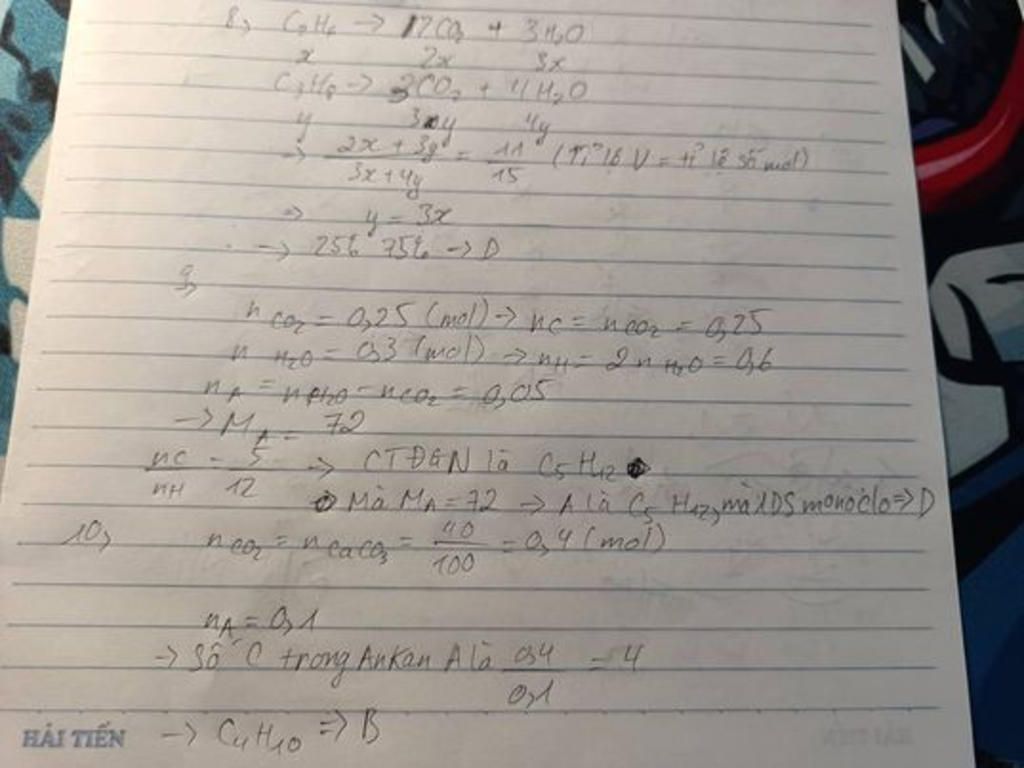 8, C2H6 → 2CO2 + 3H2O
x 2x 3x
C3H8 → 3CO2 + 4H2O
y 3y 4y
→ 2x + 3y / 3x + 4y = 11 / 15 (Tỉ lệ V = tỉ lệ số mol)
=> y = 3x
→ 25% 75% → D
9,
nCO2 = 0,25 (mol) → nC = nCO2 = 0,25
nH2O = 0,3 (mol) → nH = 2nH2O = 0,6
nA = nH2O - nCO2 = 0,05
→ MA = 72
nC / nH = 5 / 12 → CTĐGN là C5H12
Mà MA = 72 → A là C5H12, mà 1DS monoclo => D
10, nCO2 = nCaCO3 = 40 / 100 = 0,4 (mol)
nA = 0,1
→ Số C trong Ankan A là 0,4 / 0,1 = 4
→ C4H10 => B
HẢI TIẾN